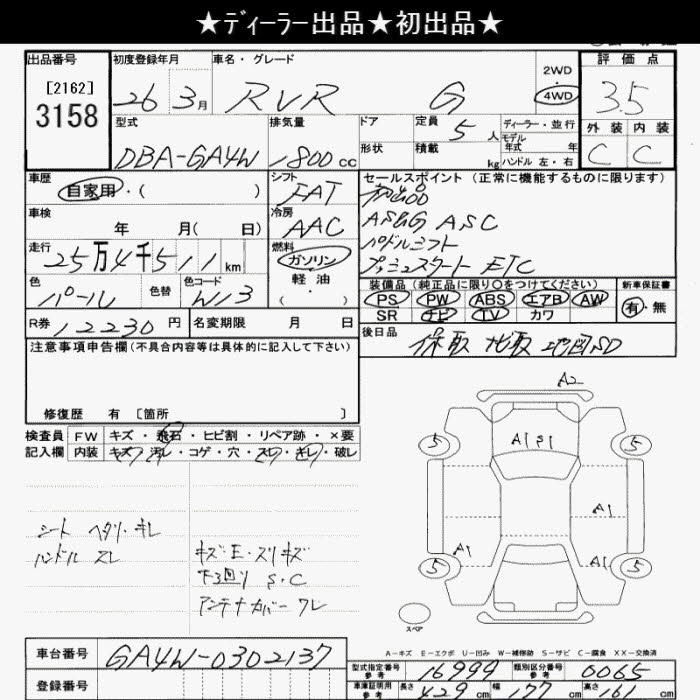 ★ディーラー出品★初出品★
出品番号 初度登録年月 車名・グレード 2WD 4WD 評価点
[2162]
3158
26 3月 RVR G 3.5
型式 排気量 ドア 定員 5人 ディーラー・並行 外装 内装
モデル年式 年
形状 積載 kg ハンドル 左・右
DBA-GA4W 1800cc C C
車歴 シフト セールスポイント (正常に機能するものに限ります)
自家用・( ) FAT 初出品
車検 冷房 AS&G ASC
年 月(日) AAC パドルシフト
走行 燃料 プッシュスタート ETC
25万4千511km ガソリン・軽油・( )
色 色替 色コード 装備品(純正品に限り○をつけてください) 新車保証書
パール W13 PS PW ABS エアB AW 有・無
SR ナビ TV カワ
R券 12230円 名変期限 月 日 後日品
保取 ナビ取 地図SD
注意事項申告欄(不具合内容等は具体的に記入して下さい)
修復歴 有 [箇所 ]
検査員 FW キズ・飛石・ヒビ割・リペア跡・×要
記入欄 内装 キズ・汚レ・コゲ・穴・スレ・キレ・破レ
A2
A1 S1
5 5
A1
A1 A1
5 5
スペア
シート ヘタリ・キレ
ハンドル スレ
キズ・E・スリキズ
下回り S・C
アンテナカバー ワレ
A-キズ E-エクボ U-凹み W-補修跡 S-サビ C-腐食 XX-交換済
車台番号 GA4W-0302137
登録番号
型式指定番号 参考 16999 類別区分番号 参考 0065
車庫証明用 参考 長さ 429cm 幅 177cm 高さ 161cm